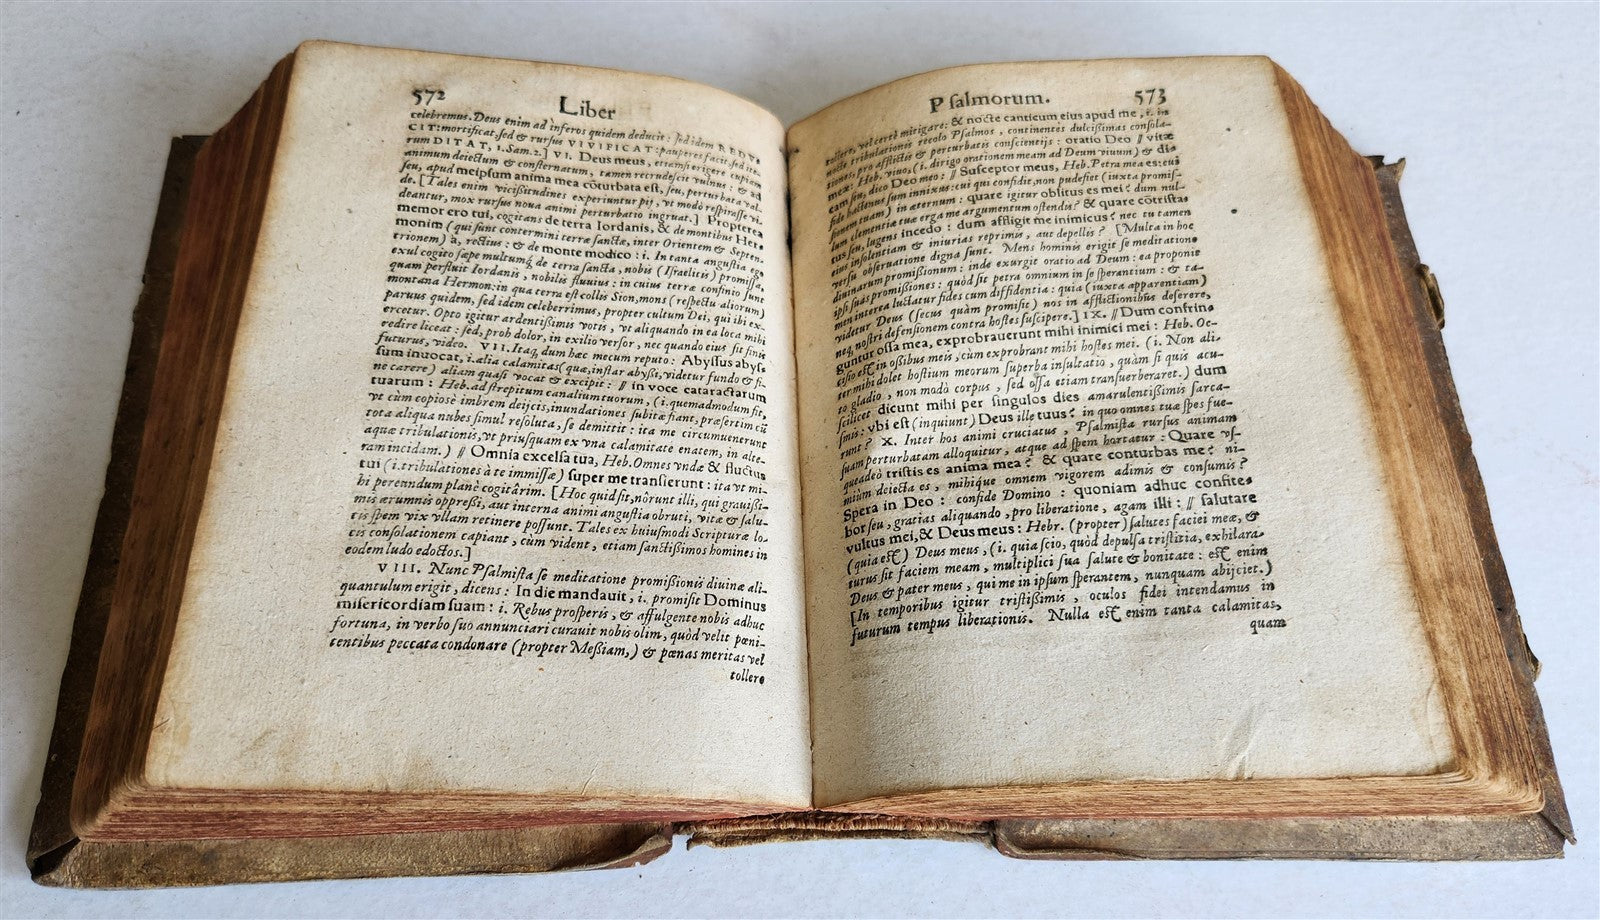 572
Liber
celebremus. Deus enim ad inferos quidem deducit: sed idem REDV
CIT: mortificat, sed & rursus VIVIFICAT: pauperes facit, sed ite
rum DITAT, 1. Sam. 2.] VI. Deus meus, etiamsi erigere cupiam
animum deiectum & consternatum, tamen recrudescit vulnus: & id
seo, apud meipsum anima mea cõturbata est, seu, perturbata val-
de. [Tales enim vicißitudines experiuntur pij, vt modò respirasse vi-
deantur, mox rursus noua animi perturbatio ingruat.] Propterea
memor ero tui, cogitans de terra Iordanis, & de montibus Her-
monim (qui sunt contermini terræ sanctæ, inter Orientem & Septen-
trionem) à, rectius: & de monte modico: i. In tanta angustia ego
exul cogito sæpe multumq; de terra sancta, nobis (Israelitis) promissa,
quam perfluit Iordanis, nobilis fluuius: in cuius terræ confinio sunt
montana Hermon: in qua terra est collis Sion, mons (respectu aliorum)
paruus quidem, sed idem celeberrimus, propter cultum Dei, qui ibi ex-
ercetur. Opto igitur ardentißimis votis, vt aliquando in ea loca mihi
redire liceat: sed, proh dolor, in exilio versor, nec quando eius sit finis
futurus, video. VII. Itaq, dum hæc mecum reputo: Abyssus abys-
sum inuocat, i. alia calamitas (quæ, instar abyßi, videtur fundo & fi-
ne carere) aliam quasi vocat & excipit: // in voce cataractarum
tuarum: Heb. ad strepitum canalium tuorum, (i. quemadmodum fit,
vt cùm copiosè imbrem deijcis, inundationes subitæ fiant, præsertim cũ
tota aliqua nubes simul resoluta, se demittit: ita me circumuenerunt
aquæ tribulationis, vt priusquam ex vna calamitate enatem, in alte-
ram incidam.) // Omnia excelsa tua, Heb. Omnes vndæ & fluctus
tui (i. tribulationes à te immissæ) super me transierunt: ita vt mi-
hi pereundum planè cogitârim. [Hoc quid sit, nôrunt illi, qui grauißi-
mis ærumnis oppreßi, aut interna animi angustia obruti, vitæ & salu-
tis spem vix vllam retinere possunt. Tales ex huiusmodi Scripturæ lo-
cis consolationem capiant, cùm vident, etiam sanctißimos homines in
eodem ludo edoctos.]
VIII. Nunc Psalmista se meditatione promißionis diuinæ ali-
quantulum erigit, dicens: In die mandauit, i. promisit Dominus
misericordiam suam: i. Rebus prosperis, & affulgente nobis adhuc
fortuna, in verbo suo annunciari curauit nobis olim, quòd velit pœni-
tentibus peccata condonare (propter Meßiam,) & pœnas meritas vel
tollere
Psalmorum.
573
tollere, vel certè mitigare: & nocte canticum eius apud me, i. in
nocte tribulationis recolo Psalmos, continentes dulcißimas consola-
tiones, pro afflictis & perturbatis conscientijs: oratio Deo // vitæ
meæ: Heb. viuo, (i. dirigo orationem meam ad Deum viuum) & di-
cam seu, dico Deo meo: // Susceptor meus, Heb. Petra mea es: cui
fide hactenus sum innixus: cui qui confidit, non pudefiet (iuxta promis-
sionem tuam) in æternum: quare igitur oblitus es mei? dum nul-
lum clementiæ tuæ erga me argumentum ostendis? & quare cõtrista
tus seu, lugens incedo: dum affligit me inimicus? nec tu tamen
eius insolentiam & iniurias reprimis, aut depellis? [Multa in hoc
versu obseruatione digna sunt. Mens hominis erigit se meditatione
diuinarum promißionum: inde exurgit oratio ad Deum: ea proponit
ipsi suas promißiones: quòd sit petra omnium in se sperantium: & ta-
men interea luctatur fides cum diffidentia: quia (iuxta apparentiam)
videtur Deus (secus quàm promisit) nos in afflictionibus deserere,
neq, nostri defensionem contra hostes suscipere.] IX. // Dum confrin-
guntur ossa mea, exprobrauerunt mihi inimici mei: Heb. Oc-
cisio est in ossibus meis, cùm exprobrant mihi hostes mei. (i. Non ali-
ter mihi dolet hostium meorum superba insultatio, quàm si quis acu-
to gladio, non modò corpus, sed ossa etiam transuerberaret.) dum
scilicet dicunt mihi per singulos dies amarulentißimis sarca-
smis: vbi est (inquiunt) Deus ille tuus? in quo omnes tuæ spes fue-
runt? X. Inter hos animi cruciatus, Psalmista rursus animam
suam perturbatam alloquitur, atque ad spem hortatur: Quare vs-
queadeò tristis es anima mea? & quare conturbas me? ni-
miùm deiecta es, mihique omnem vigorem adimis & consumis?
Spera in Deo: confide Domino: quoniam adhuc confite-
bor seu, gratias aliquando, pro liberatione, agam illi: // salutare
vultus mei, & Deus meus: Hebr. (propter) salutes faciei meæ, &
(quia est) Deus meus, (i. quia scio, quòd depulsa tristitia, exhilara-
turus sit faciem meam, multiplici sua salute & bonitate: est enim
Deus & pater meus, qui me in ipsum sperantem, nunquam abijciet.)
[In temporibus igitur tristißimis, oculos fidei intendamus in
futurum tempus liberationis. Nulla est enim tanta calamitas,
quam